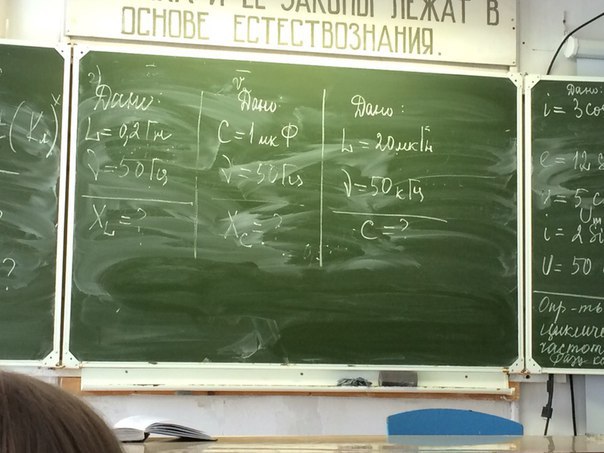 И ЕЁ ЗАКОНЫ ЛЕЖАТ В
ОСНОВЕ ЕСТЕСТВОЗНАНИЯ.
?
Дано:
L = 0,2 Гн
ν = 50 Гц
X_L = ?
Дано:
C = 1 мкФ
ν = 50 Гц
X_C = ?
Дано:
L = 20 мкГн
ν = 50 кГц
C = ?
Дано:
i = 3 co
e = 12
i = 2 Si
U = 50
Опр-ть
цикличе
частот